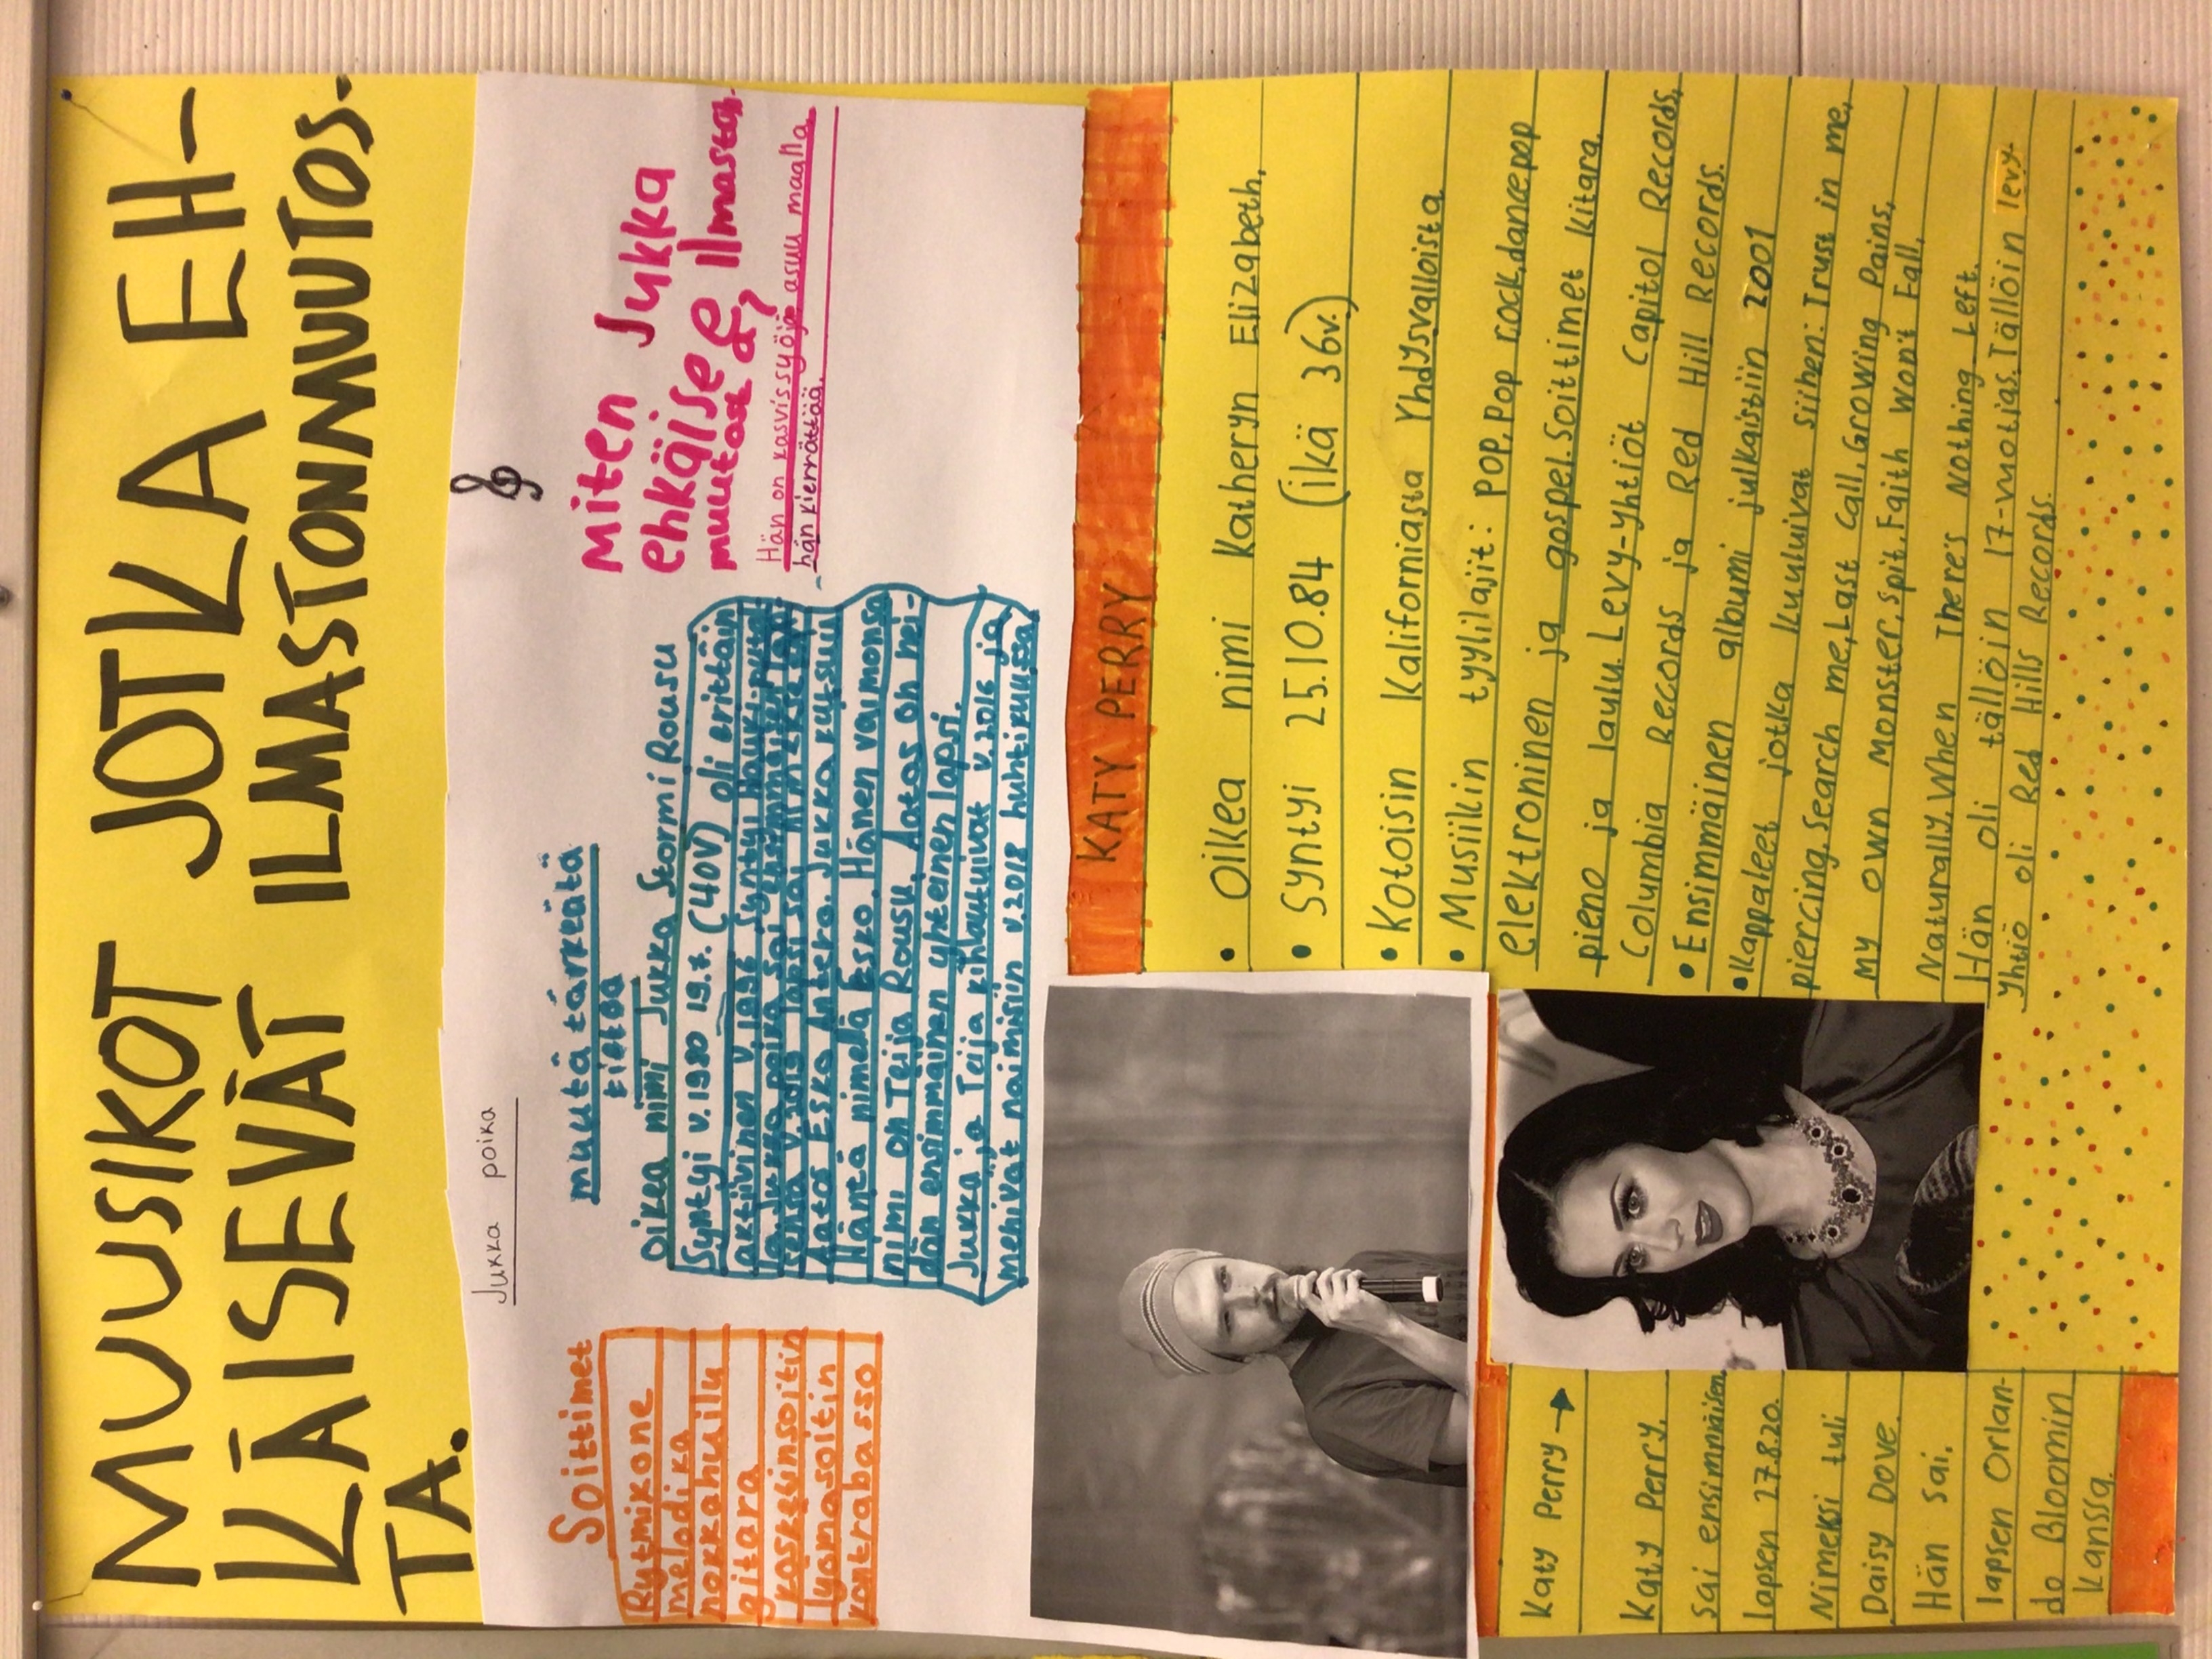 MUUSIKOT JOTKA EH-
KÄISEVÄT ILMASTONMUUTOS-
TA.
Jukka poika
Soittimet
Rytmikone
melodika
nokkahuilu
gitara
koskettinsoitin
lyömäsoitin
kontrabasso
muuta tärkeätä
tietoa
Oikea nimi Jukka Stormi Rousu
Syntyi v.1980 19.7. (40V) oli erittäin
aktiivinen v.1996 Syntyi hauki-
ja Jukka poika sai ensimmäisen
v.2018 lapsi sai nimekseen
Aatos Esko Antero. Jukka kutsuu
Häntä nimellä Esko. Hänen vaimonsa
nimi on Teija Rousu. Aatos on hei-
dän ensimmäinen yhteinen lapsi.
Jukka ja Teija kihlautuivat v.2016 ja
menivat naimisiin v.2018 huhtikuussa
Miten Jukka
ehkäise Ilmaston
muutos &?
Hän on kasvissyöjä asuu maalla.
hän kierrättää.
KATY PERRY
• Oikea nimi Katheryn Elizabeth.
• Syntyi 25.10.84 (ikä 36v.)
• Kotoisin Kaliforniasta Yhdysvalloista
• Musiikin tyylilajit: Pop, Pop rock, dance pop
elektroninen ja gospel. Soittimet kitara,
pieno ja laulu. Levy-yhtiöt Capitol Records,
Columbia Records ja Red Hill Records.
• Ensimmäinen albumi julkaistiin 2001
• Kappaleet jotka kuuluivat siihen: Trust in me,
piercing, Search me, Last call, Growing Pains,
My own Monster, spit, Faith Won't Fall,
Naturally, When There's Nothing Left.
Hän oli tällöin 17-vuotias. Tällöin levy-
yhtiö oli Red Hills Records.
Katy Perry →
Katy Perry.
Sai ensimmäisen
lapsen 27.8.20.
Nimeksi tuli
Daisy Dove.
Hän sai.
lapsen Orlan-
do Bloomin
kanssa.